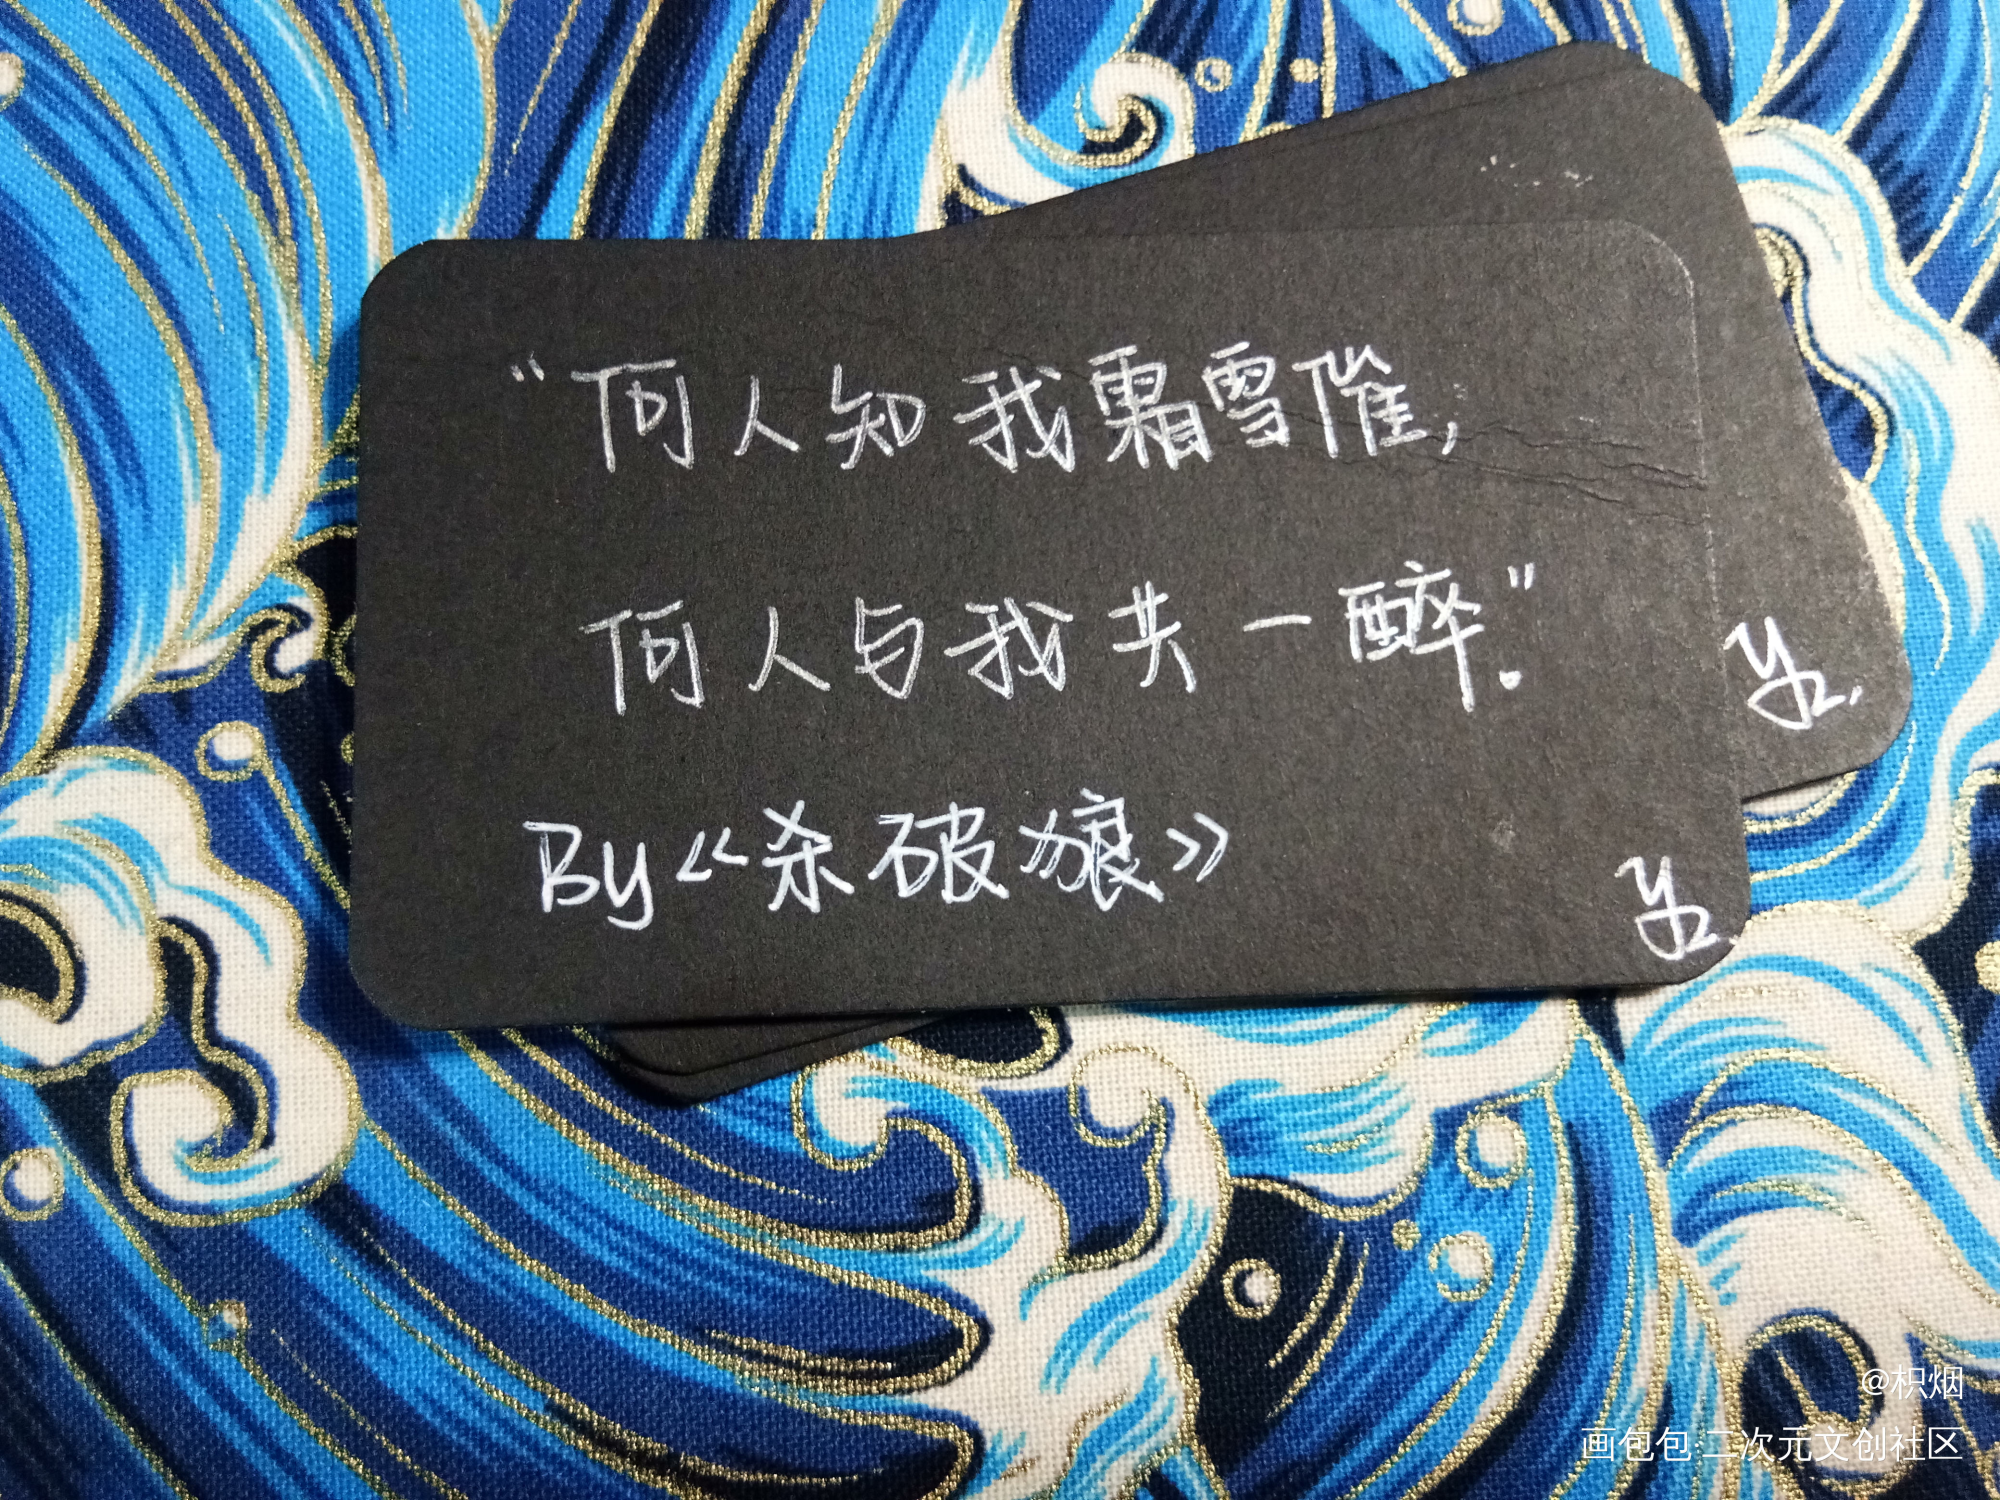 “何人知我霜雪催,
何人与我共一醉。”
By《杀破狼》
@枳烟
画包包·二次元文创社区